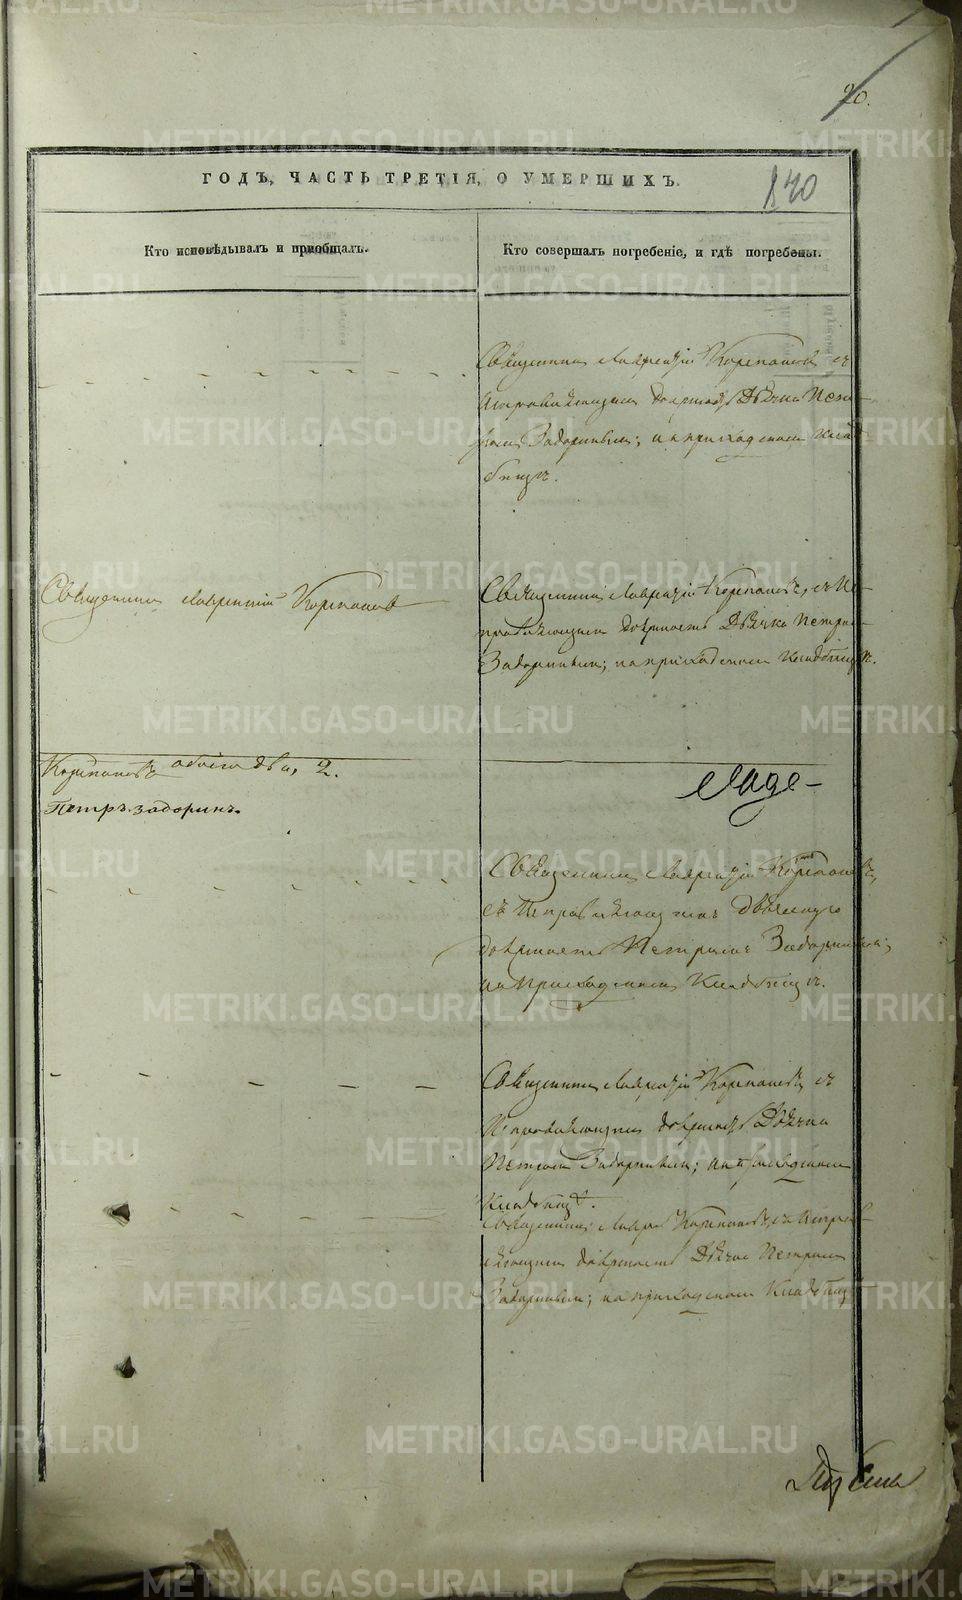 20.
ГОДЪ, ЧАСТЬ ТРЕТІЯ, О УМЕРШИХЪ.
140
Кто исповѣдывалъ и пріобщалъ.
Кто совершалъ погребеніе, и гдѣ погребены.
Священникъ Лаврентій Корепановъ съ
исправляющимъ должность Дьячка Пет-
ромъ Задоринымъ; на приходскомъ клад-
бищѣ.
Священникъ Лаврентій Корепановъ
Священникъ Лаврентій Корепановъ, съ ис-
правляющимъ должность Дьячка Петромъ
Задоринымъ; на приходскомъ кладбищѣ.
Корепановъ обоего два, 2.
Петръ Задоринъ.
Священникъ Лаврентій Корепановъ,
съ исправляющимъ дьяческую
должность Петромъ Задоринымъ;
на приходскомъ кладбищѣ.
Священникъ Лаврентій Корепановъ съ
исправляющимъ должность Дьячка
Петромъ Задоринымъ; на приходскомъ
кладбищѣ.
Священникъ Корепановъ, съ исправ-
ляющимъ должность Дьячка Петромъ
Задоринымъ; на приходскомъ кладбищѣ
METRIKI.GASO-URAL.RU